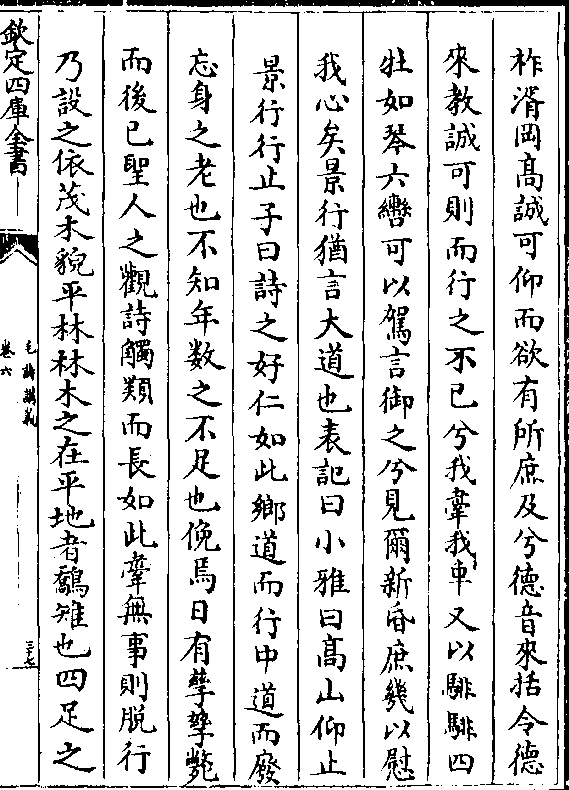 柞湑岡高誠可仰而欲有所庶及兮德音來括令德
來教誠可則而行之不已兮我舝我車又以騑騑四
牡如琴六轡可以駕言御之兮見爾新昏庶幾以慰
我心矣景行猶言大道也表記曰小雅曰高山仰止
景行行止子曰詩之好仁如此鄉道而行中道而廢
忘身之老也不知年数之不足也俛焉日有孳孳斃
而後已聖人之觀詩觸類而長如此舝無事則脱行
乃設之依茂木貌平林林木之在平地者鷮雉也四足之
欽定四庫全書
毛詩講義
卷六
三十七